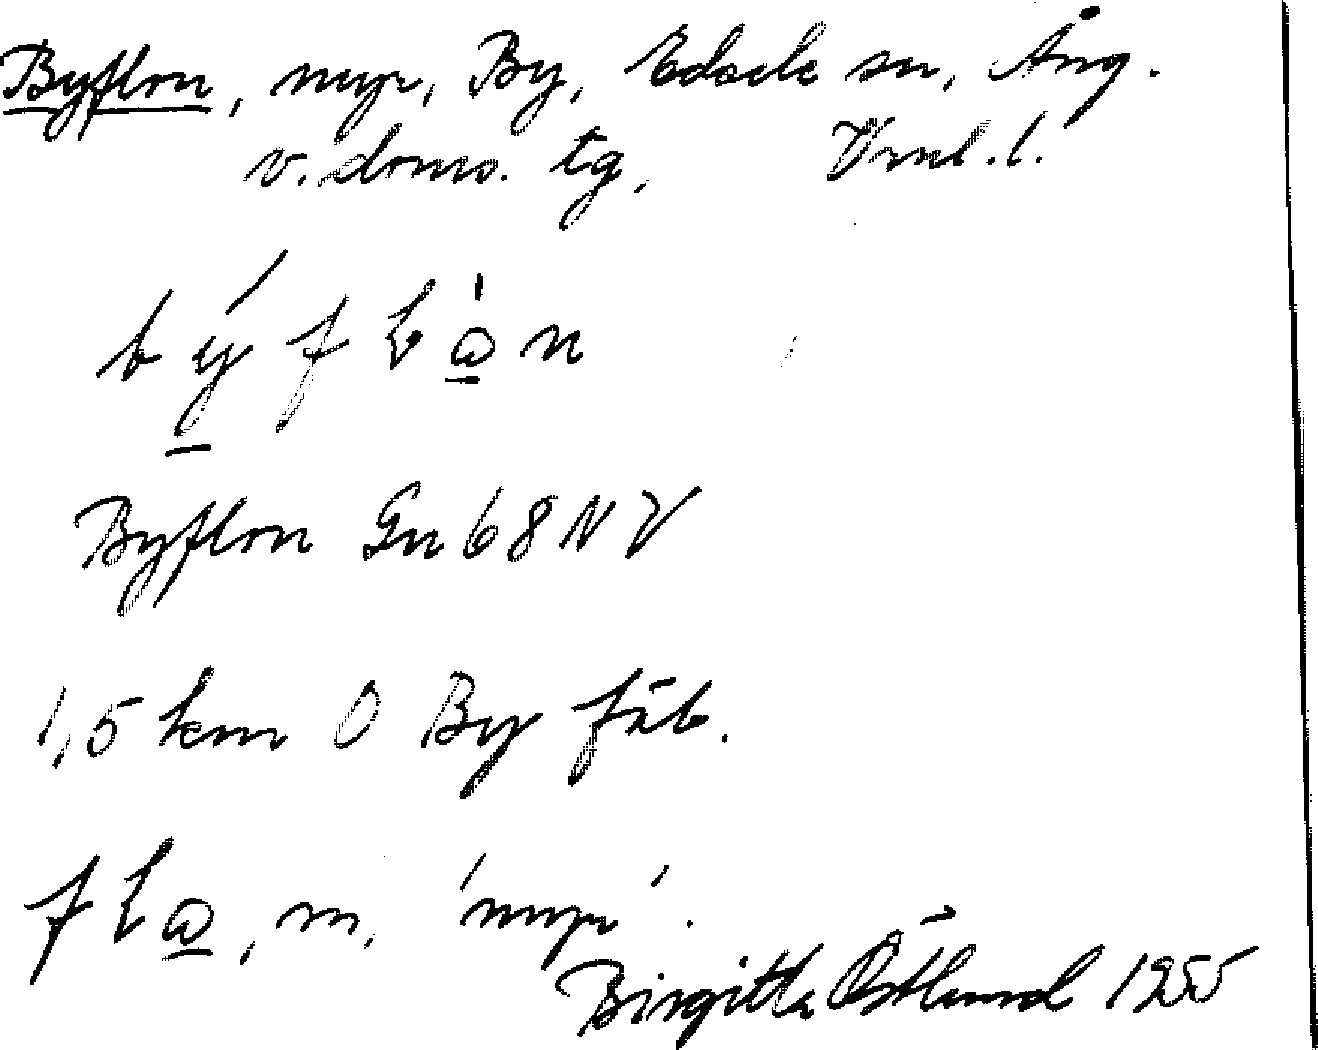 Byflon, myr, By, Edsele sn, Ång.
v. doms. tg. Vrml.l.
Byflon Gn 68 NV
1,5 km O By fäb.
m. 'myr'.
Birgitta Östlund 1955